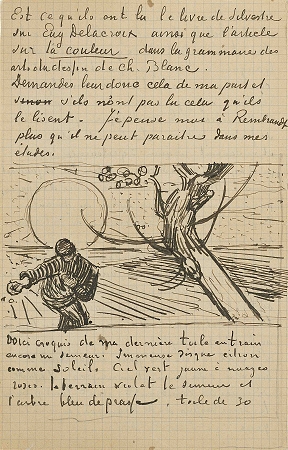 Est ce qu'ils ont lu le livre de Silvestre
sur Eug Delacroix ainsi que l'article
sur la couleur dans la grammaire des
arts du dessin de Ch. Blanc.
Demandes leur donc cela de ma part et
sinon s'ils n'ont pas lu cela qu'ils
le lisent. j'epense moi à Rembrandt
plus qu'il ne peut paraitre dans mes
études.
Voici croquis de ma dernière toile en train
encore un semeur. Immense disque citron
comme soleil. Ciel vert jaune à nuages
roses. le terrain violet le semeur et
l'arbre bleu de prusse. toile de 30